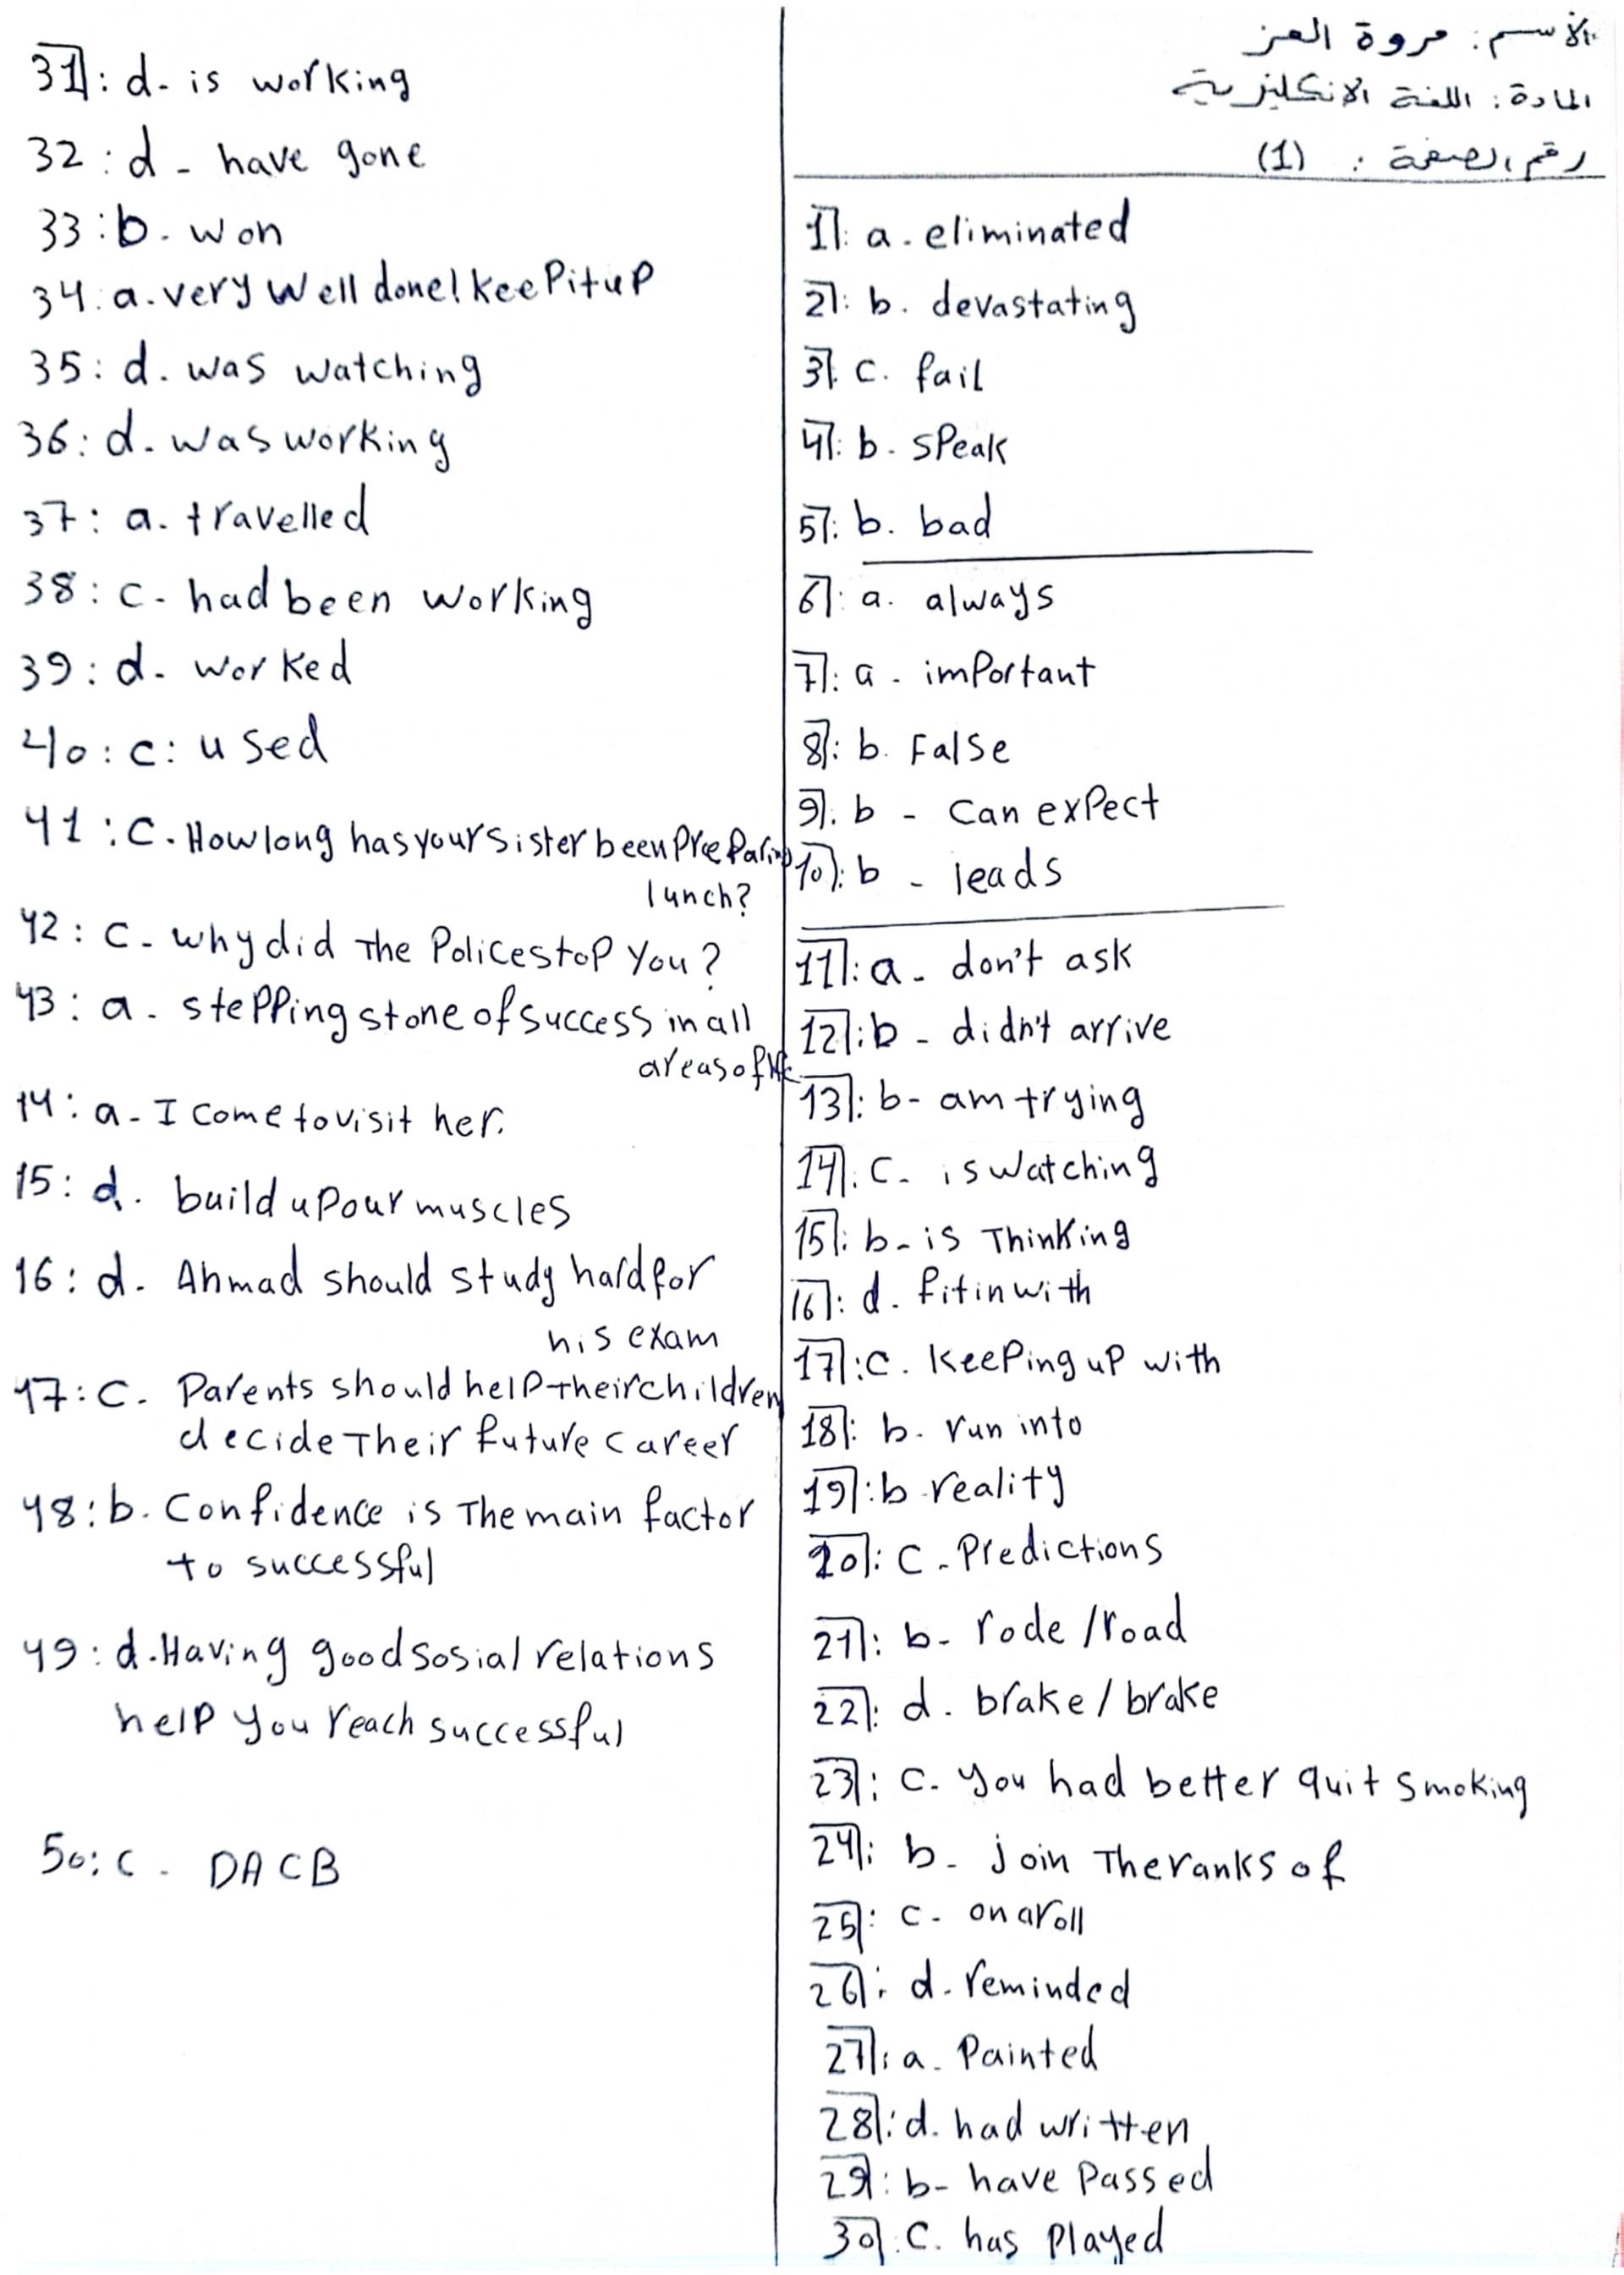 الاسم: مروة العز
المادة: اللغة الانكليزية
رقم الصفحة: (1)
1: a. eliminated
2: b. devastating
3. c. fail
4: b. sPeak
5: b. bad
6: a. always
7: a - imPortant
8: b. False
9: b - can exPect
10: b - leads
11: a - don't ask
12: b - didn't arrive
13: b- am trying
14: c- is watching
15: b- is Thinking
16: d. fit in with
17: c. KeePing uP with
18: b. run into
19: b. reality
20: c - Predictions
21: b- rode / road
22: d. brake / brake
23: c. you had better quit smoking
24: b- join The ranks of
25: c- on a roll
26: d. reminded
27: a- Painted
28: d. had written
29: b- have Passed
30: c. has Played
31: d- is working
32: d - have gone
33: b. won
34: a. very well done! keeP it uP
35: d. was watching
36: d. was working
37: a. travelled
38: c- had been working
39: d- worked
40: c: used
41: c. How long has your sister been PreeParing
lunch?
42: c - why did The Police stoP you?
43: a - stePPing stone of success in all
areas of life
14: a - I come to visit her.
15: d. build uP our muscles
16: d. Ahmad should study hard for
his exam
17: c. Parents should helP their children
decide Their future career
48: b. Confidence is The main factor
to successful
49: d. Having good sosial relations
helP you reach successful
50: c - DACB